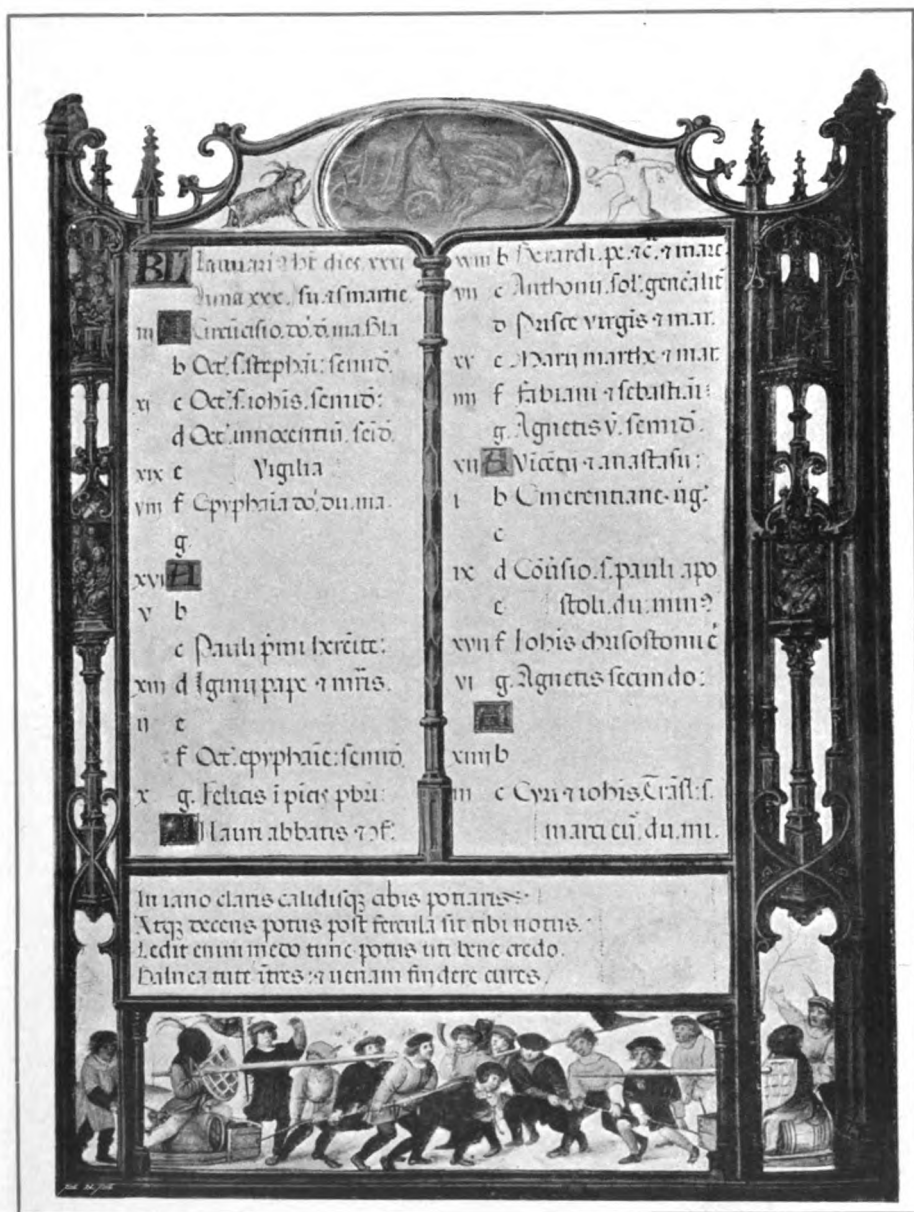 KL Januari⁹ ht dies xxxi
luna xxx. su. 
iii A Circūcisio. do.
b Oct. s. stephāi: semid.
xi c Oct. s. iohis. semid:
d Oct. innocentiū. seid.
xix e Vigilia
viii f Epyphāia do. du. ma.
g.
xvi A
v b
c Pauli pimi heremite:
xiii d Iginii pape ⁊ mris.
ii e
f Oct. epyphāie: semid.
x g. Felicis i picis pbri:
A Mauri abbatis ⁊ 9f:
xviii b Berardi. pe. ⁊ mar.
vii c Anthonii. sol.
d Prisce virgis ⁊ mar.
xv e Marii marthe ⁊ mar
iiii f Fabiani ⁊ sebastiāi:
g. Agnetis v. semid.
xii A Vicētii ⁊ anastasii:
i b Emerentiane. v̄g:
c
ix d Cōūsio. s. pauli. apo
e stoli. du. min?
xvii f Iohis chrisostomi ē
vi g. Agnetis secundo:
A
xiiii b
iii c Cyri ⁊ iohis. Trāsl: s.
marci cū. du. mi.
In iano claris calidisq; cibis potiaris:
Atq; decens potus post fercula sit tibi notus.
Ledit enim medo tunc potus uti bene credo.
Balnea tute ītres: ⁊ uenam findere cures.